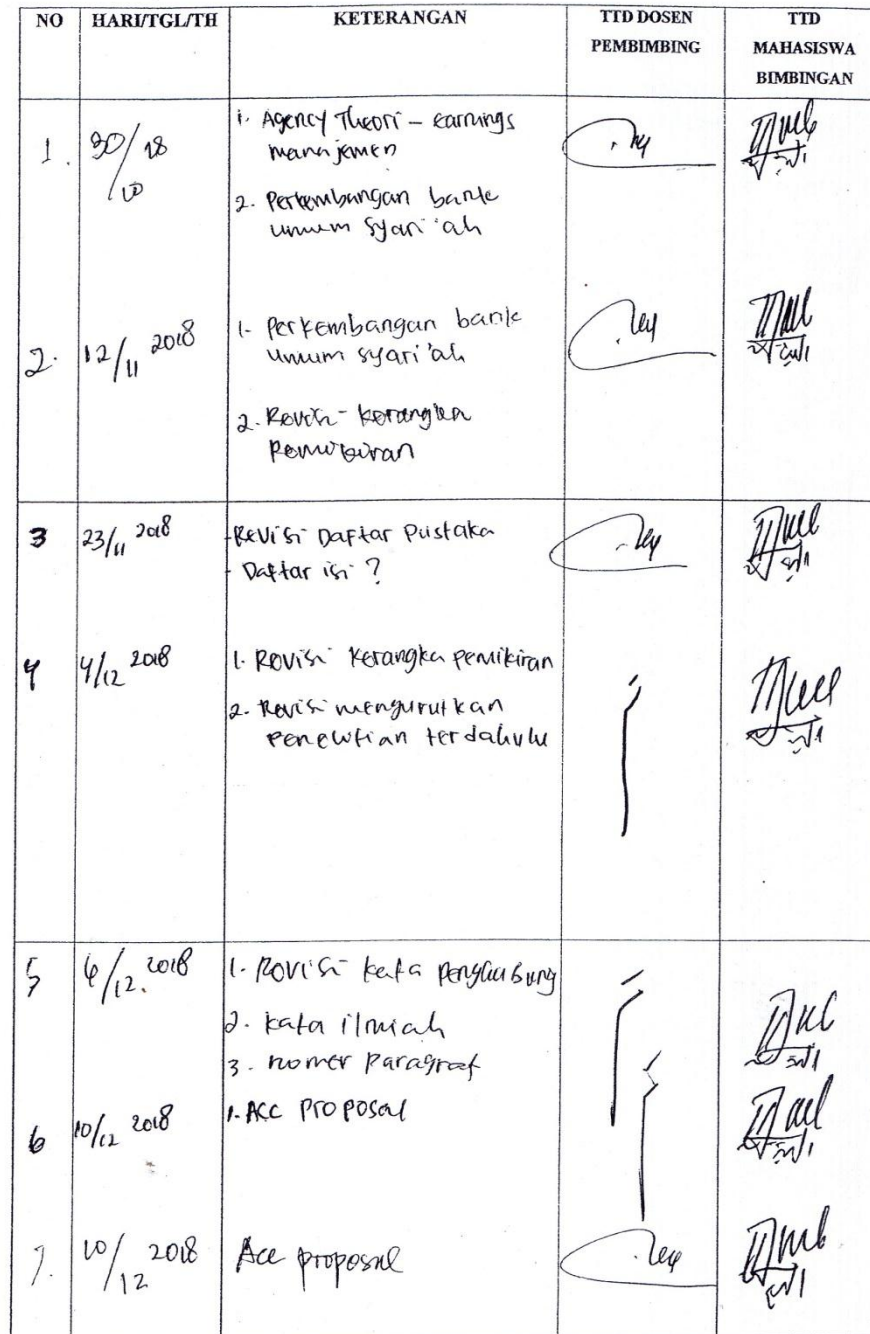 NO HARI/TGL/TH KETERANGAN TTD DOSEN PEMBIMBING TTD MAHASISWA BIMBINGAN
1. 30/10 18 1. Agency Theori - earnings
manajemen
2. Perkembangan bank
umum syari'ah
2. 12/11 2018 1. Perkembangan bank
umum syari'ah
2. Revisi - kerangka
Pemikiran
3 23/11 2018 - Revisi Daftar Pustaka
- Daftar isi ?
4 4/12 2018 1. Revisi kerangka pemikiran
2. Revisi mengurutkan
penelitian terdahulu
5 6/12. 2018 1. Revisi kata penghubung
2. kata ilmiah
3. nomer paragraf
6 10/12 2018 1. Acc proposal
7. 10/12 2018 Acc proposal